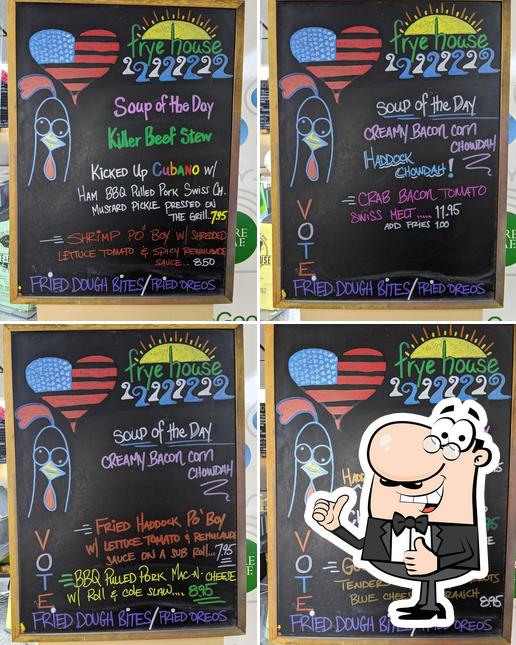 frye house
Soup of the Day
Killer Beef Stew
Kicked Up Cubano w/
Ham BBQ Pulled Pork Swiss Ch.
Mustard Pickle Dressed on
The Grill. 7.95
Shrimp Po' Boy w/ Shredded
Lettuce Tomato & Spicy Remoulade
Sauce... 8.50
Fried Dough Bites/Fried Oreos
frye house
Soup of the Day
Creamy Bacon Corn
Chowdah
Haddock
Chowdah!
Crab Bacon Tomato
Swiss Melt..... 11.95
Add Fries 1.00
VOTE
Fried Dough Bites/Fried Oreos
frye house
Soup of the Day
Creamy Bacon Corn
Chowdah
Fried Haddock Po' Boy
w/ Lettuce Tomato & Remoulade
Sauce on a Sub Roll... 7.95
BBQ Pulled Pork Mac-N-Cheese
w/ Roll & Cole Slaw.... 8.95
VOTE
Fried Dough Bites/Fried Oreos
frye house
VOTE
Tenders
Blue Cheese
Ranch
8.95
Fried Dough Bites/Fried Oreos